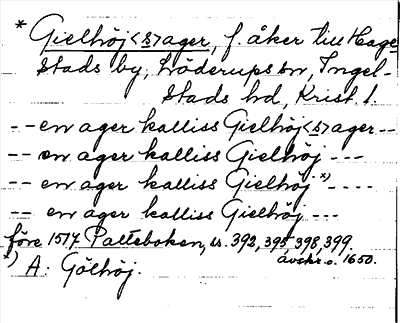 * Gielhöj<s>ager, f. åker till Hage
stads by, Löderups sn, Ingel-
stads hd, Krist. l.
-- en ager kalliss Gielhöj<s>ager --
-- en ager kalliss Gielhöj ---
-- en ager kalliss Gielhöj *) ----
-- en ager kalliss Gielhöj ---
före 1517 Palteboken, s. 392, 395, 398, 399.
avskr. o. 1650.
*) A: Gölhöj.